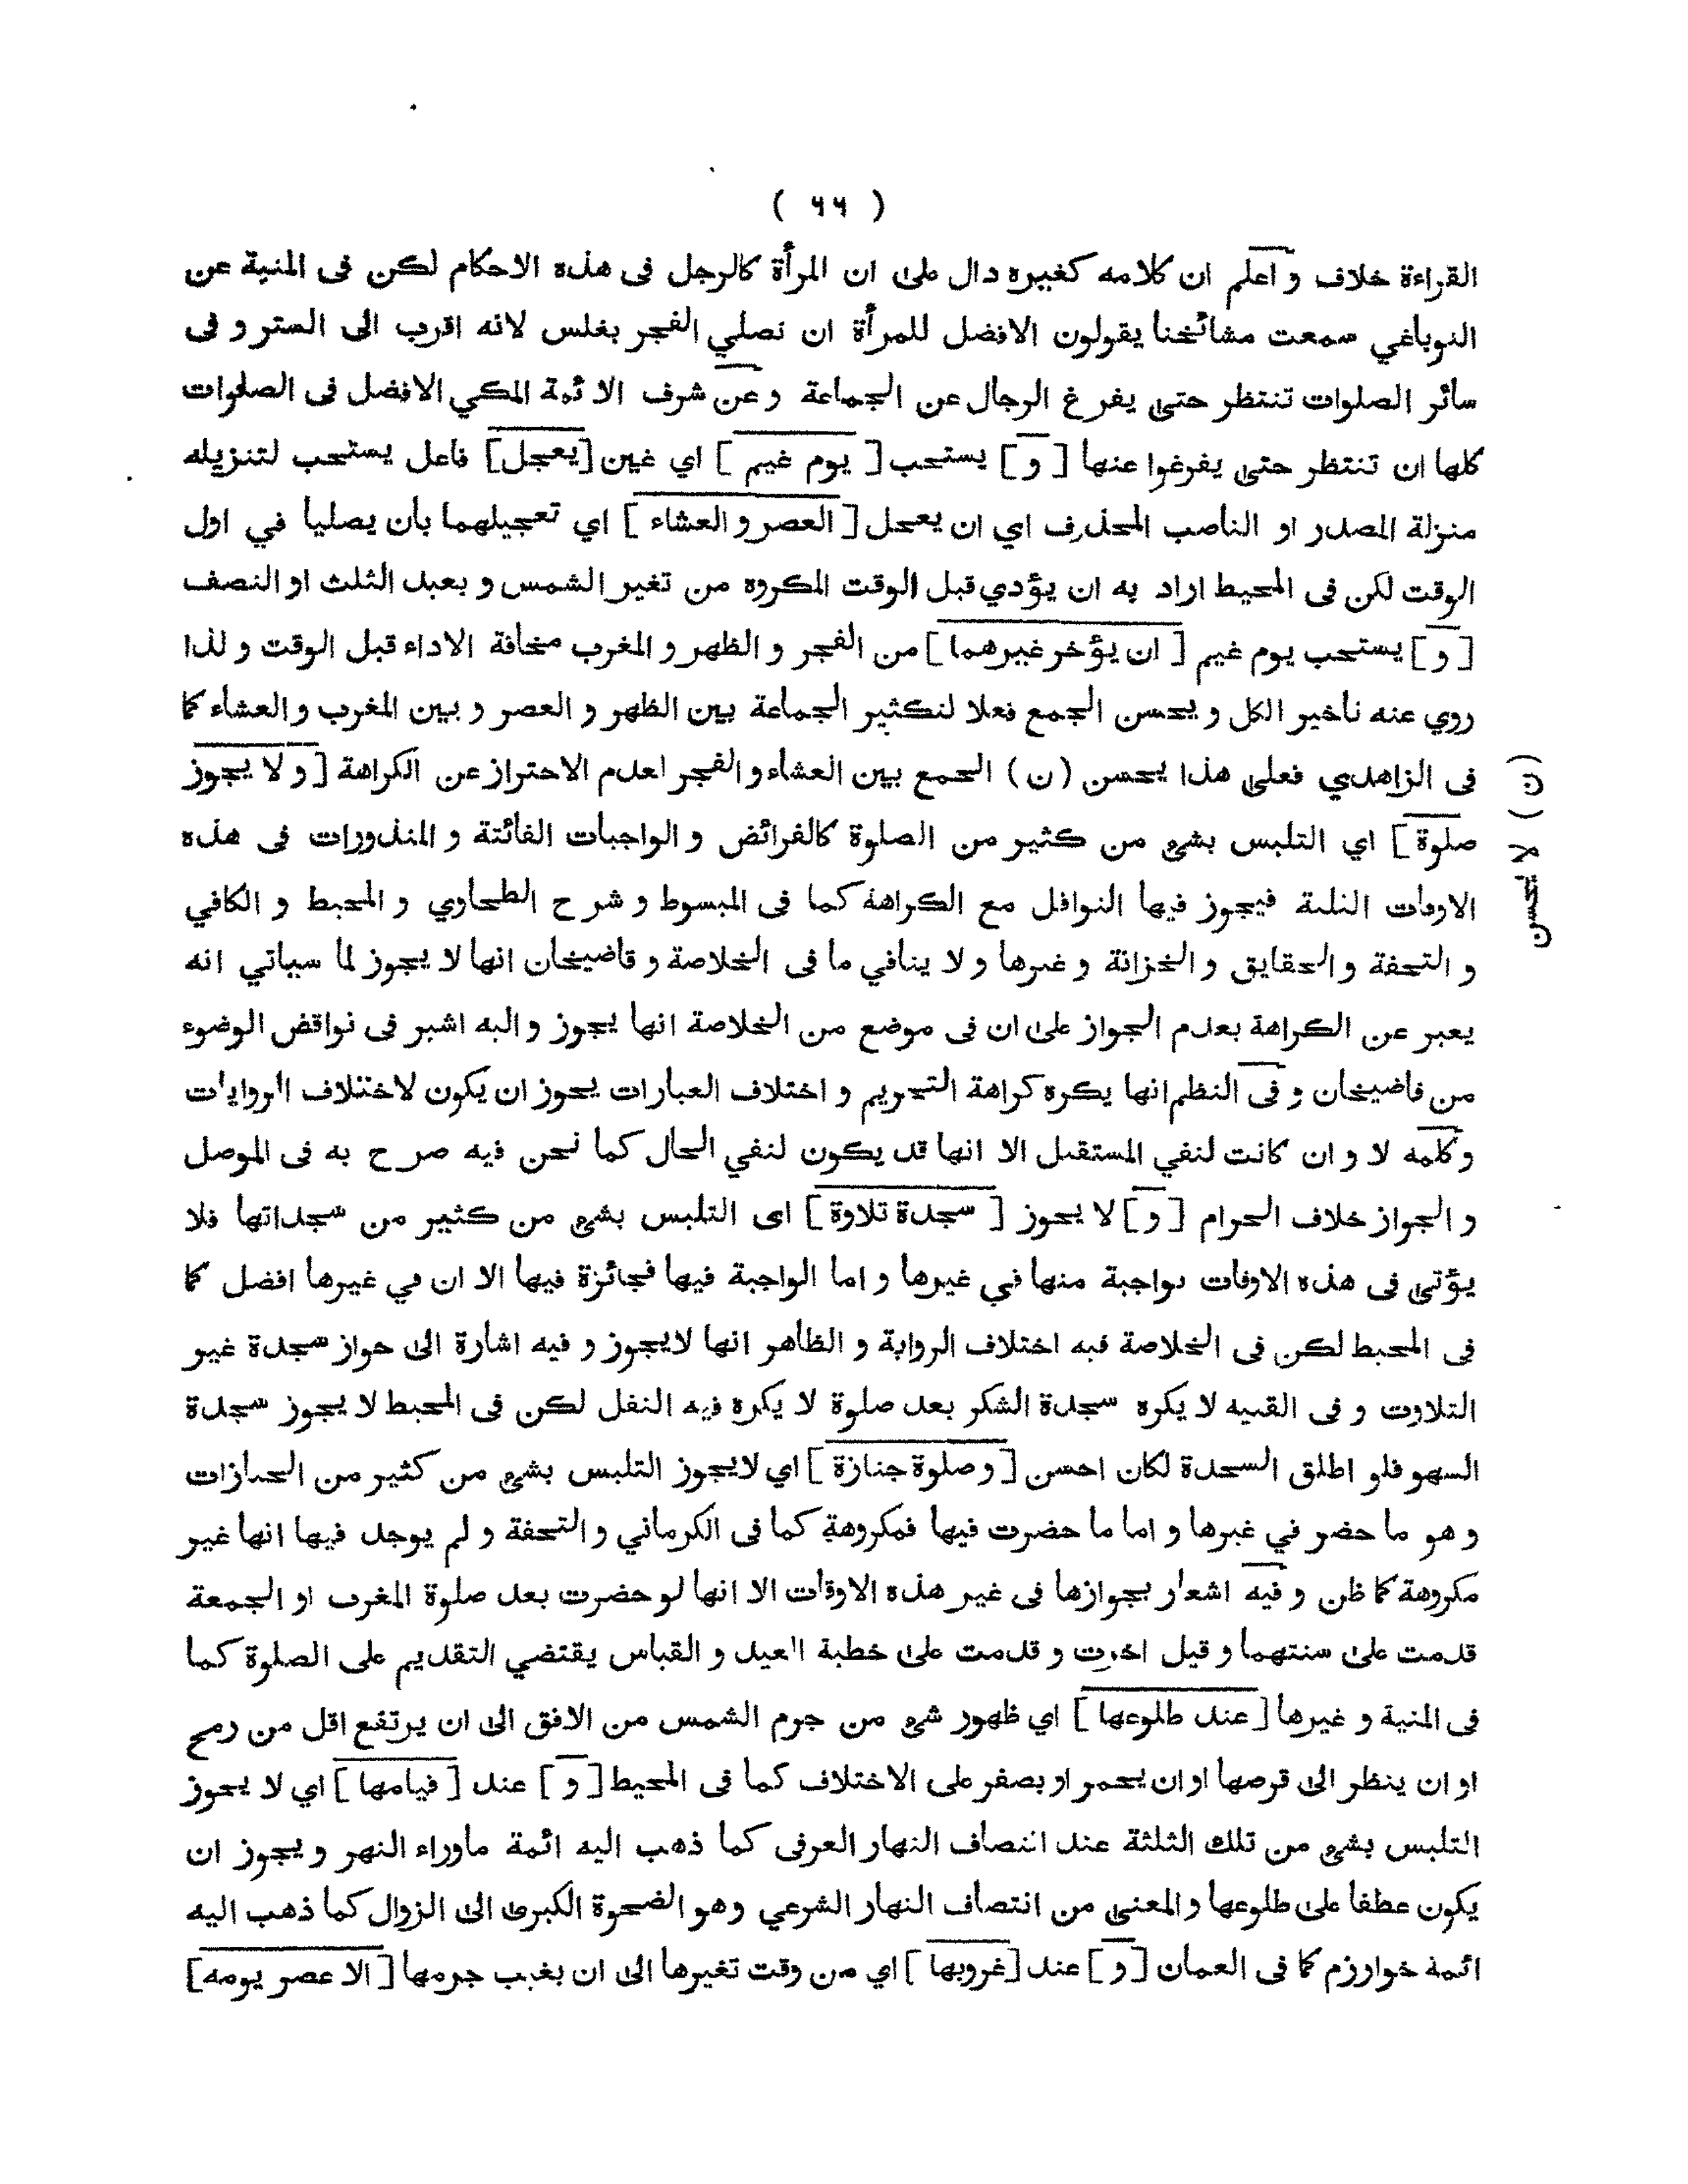 ( ٦٦ )
القراءة خلاف و اعلم ان كلامه كغيره دال على ان المرأة كالرجل فى هذه الاحكام لكن فى المنية عن
النوباغي سمعت مشائخنا يقولون الافضل للمرأة ان تصلي الفجر بغلس لانه اقرب الى الستر و فى
سائر الصلوات تنتظر حتى يفرغ الرجال عن الجماعة و عن شرف الائمة المكي الافضل فى الصلوات
كلها ان تنتظر حتى يفرغوا عنها [ و ] يستحب [ يوم غيم ] اي غين [يعجل] فاعل يستحب لتنزيله
منزلة المصدر او الناصب المحذوف اي ان يعجل [ العصر و العشاء ] اي تعجيلهما بأن يصليا في اول
الوقت لكن فى المحيط اراد به ان يؤدي قبل الوقت المكروه من تغير الشمس و بعيد الثلث او النصف
[ و ] يستحب يوم غيم [ ان يؤخر غيرهما ] من الفجر و الظهر و المغرب مخافة الاداء قبل الوقت و لذا
روي عنه تأخير الكل و يحسن الجمع فعلا لتكثير الجماعة بين الظهر و العصر و بين المغرب و العشاء كما
فى الزاهدي فعلى هذا يحسن (ن) الجمع بين العشاء و الفجر لعدم الاحتراز عن الكراهة [ و لا يجوز
صلوة ] اي التلبس بشئ من كثير من الصلوة كالفرائض و الواجبات الفائتة و المنذورات فى هذه
الاوقات الثلثة فيجوز فيها النوافل مع الكراهة كما فى المبسوط و شرح الطحاوي و المحيط و الكافي
و التحفة و الحقايق و الخزانة و غيرها و لا ينافي ما فى الخلاصة و قاضيخان انها لا يجوز لما سيأتي انه
يعبر عن الكراهة بعدم الجواز على ان فى موضع من الخلاصة انها يجوز و اليه اشير فى نواقض الوضوء
من قاضيخان و فى النظم انها يكره كراهة التحريم و اختلاف العبارات يجوز ان يكون لاختلاف الروايات
و كلمه لا و ان كانت لنفي المستقبل الا انها قد يكون لنفي الحال كما نحن فيه صرح به فى الموصل
و الجواز خلاف الحرام [ و ] لا يجوز [ سجدة تلاوة ] اى التلبس بشئ من كثير من سجداتها فلا
يؤتى فى هذه الاوقات بواجبة منها في غيرها و اما الواجبة فيها فجائزة فيها الا ان في غيرها افضل كما
فى المحيط لكن فى الخلاصة فيه اختلاف الرواية و الظاهر انها لايجوز و فيه اشارة الى جواز سجدة غير
التلاوت و فى القنيه لا يكره سجدة الشكر بعد صلوة لا يكره فيه النفل لكن فى المحيط لا يجوز سجدة
السهو فلو اطلق السجدة لكان احسن [ و صلوة جنازة ] اي لايجوز التلبس بشئ من كثير من الجنازات
و هو ما حضر في غيرها و اما ما حضرت فيها فمكروهة كما فى الكرماني و التحفة و لم يوجد فيها انها غير
مكروهة كما ظن و فيه اشعار بجوازها فى غير هذه الاوقات الا انها لو حضرت بعد صلوة المغرب او الجمعة
قدمت على سنتهما و قيل اخرت و قدمت على خطبة العيد و القياس يقتضي التقديم على الصلوة كما
فى المنية و غيرها [ عند طلوعها ] اي ظهور شئ من جرم الشمس من الافق الى ان يرتفع اقل من رمح
او ان ينظر الى قرصها او ان يحمر او يصفر على الاختلاف كما فى المحيط [ و ] عند [ قيامها ] اي لا يجوز
التلبس بشئ من تلك الثلثة عند انتصاف النهار العرفى كما ذهب اليه ائمة ماوراء النهر و يجوز ان
يكون عطفا على طلوعها و المعنى من انتصاف النهار الشرعي وهو الضحوة الكبرى الى الزوال كما ذهب اليه
ائمة خوارزم كما فى العمان [ و ] عند [غروبها ] اي من وقت تغيرها الى ان يغيب جرمها [ الا عصر يومه ]
(ن) لا يحسن